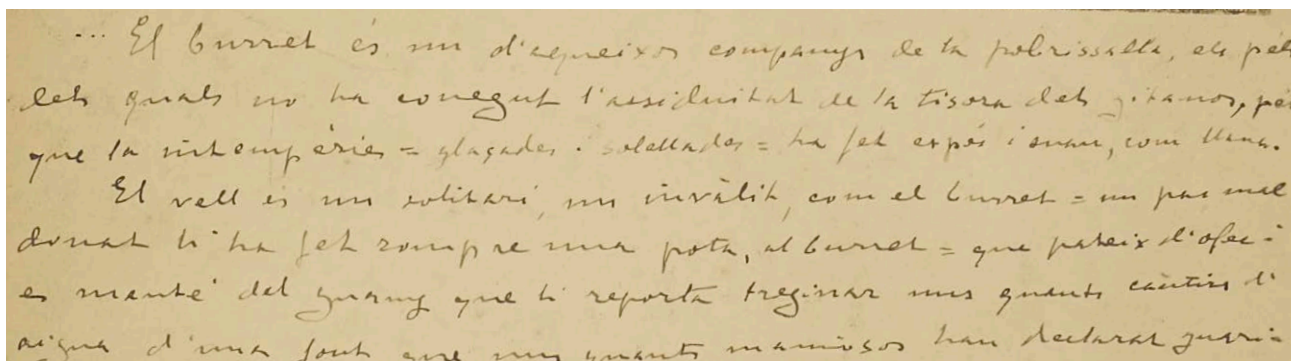 ... El burret és un d'aqueixos companys de la pobrissalla, els pèls
dels quals no ha conegut l'assiduitat de la tisora dels gitanos, pèl
que la intempèries = glaçades i solellades = ha fet espés i suau, com llana.
El vell és un solitari, un invàlit, com el burret = un pas mal
donat li ha fet rompre una pota, al burret = que pateix d'ofec i
es manté del guany que li reporta treginar uns quants càntirs d'
aigua d'una font que uns quants maniosos han declarat guari-